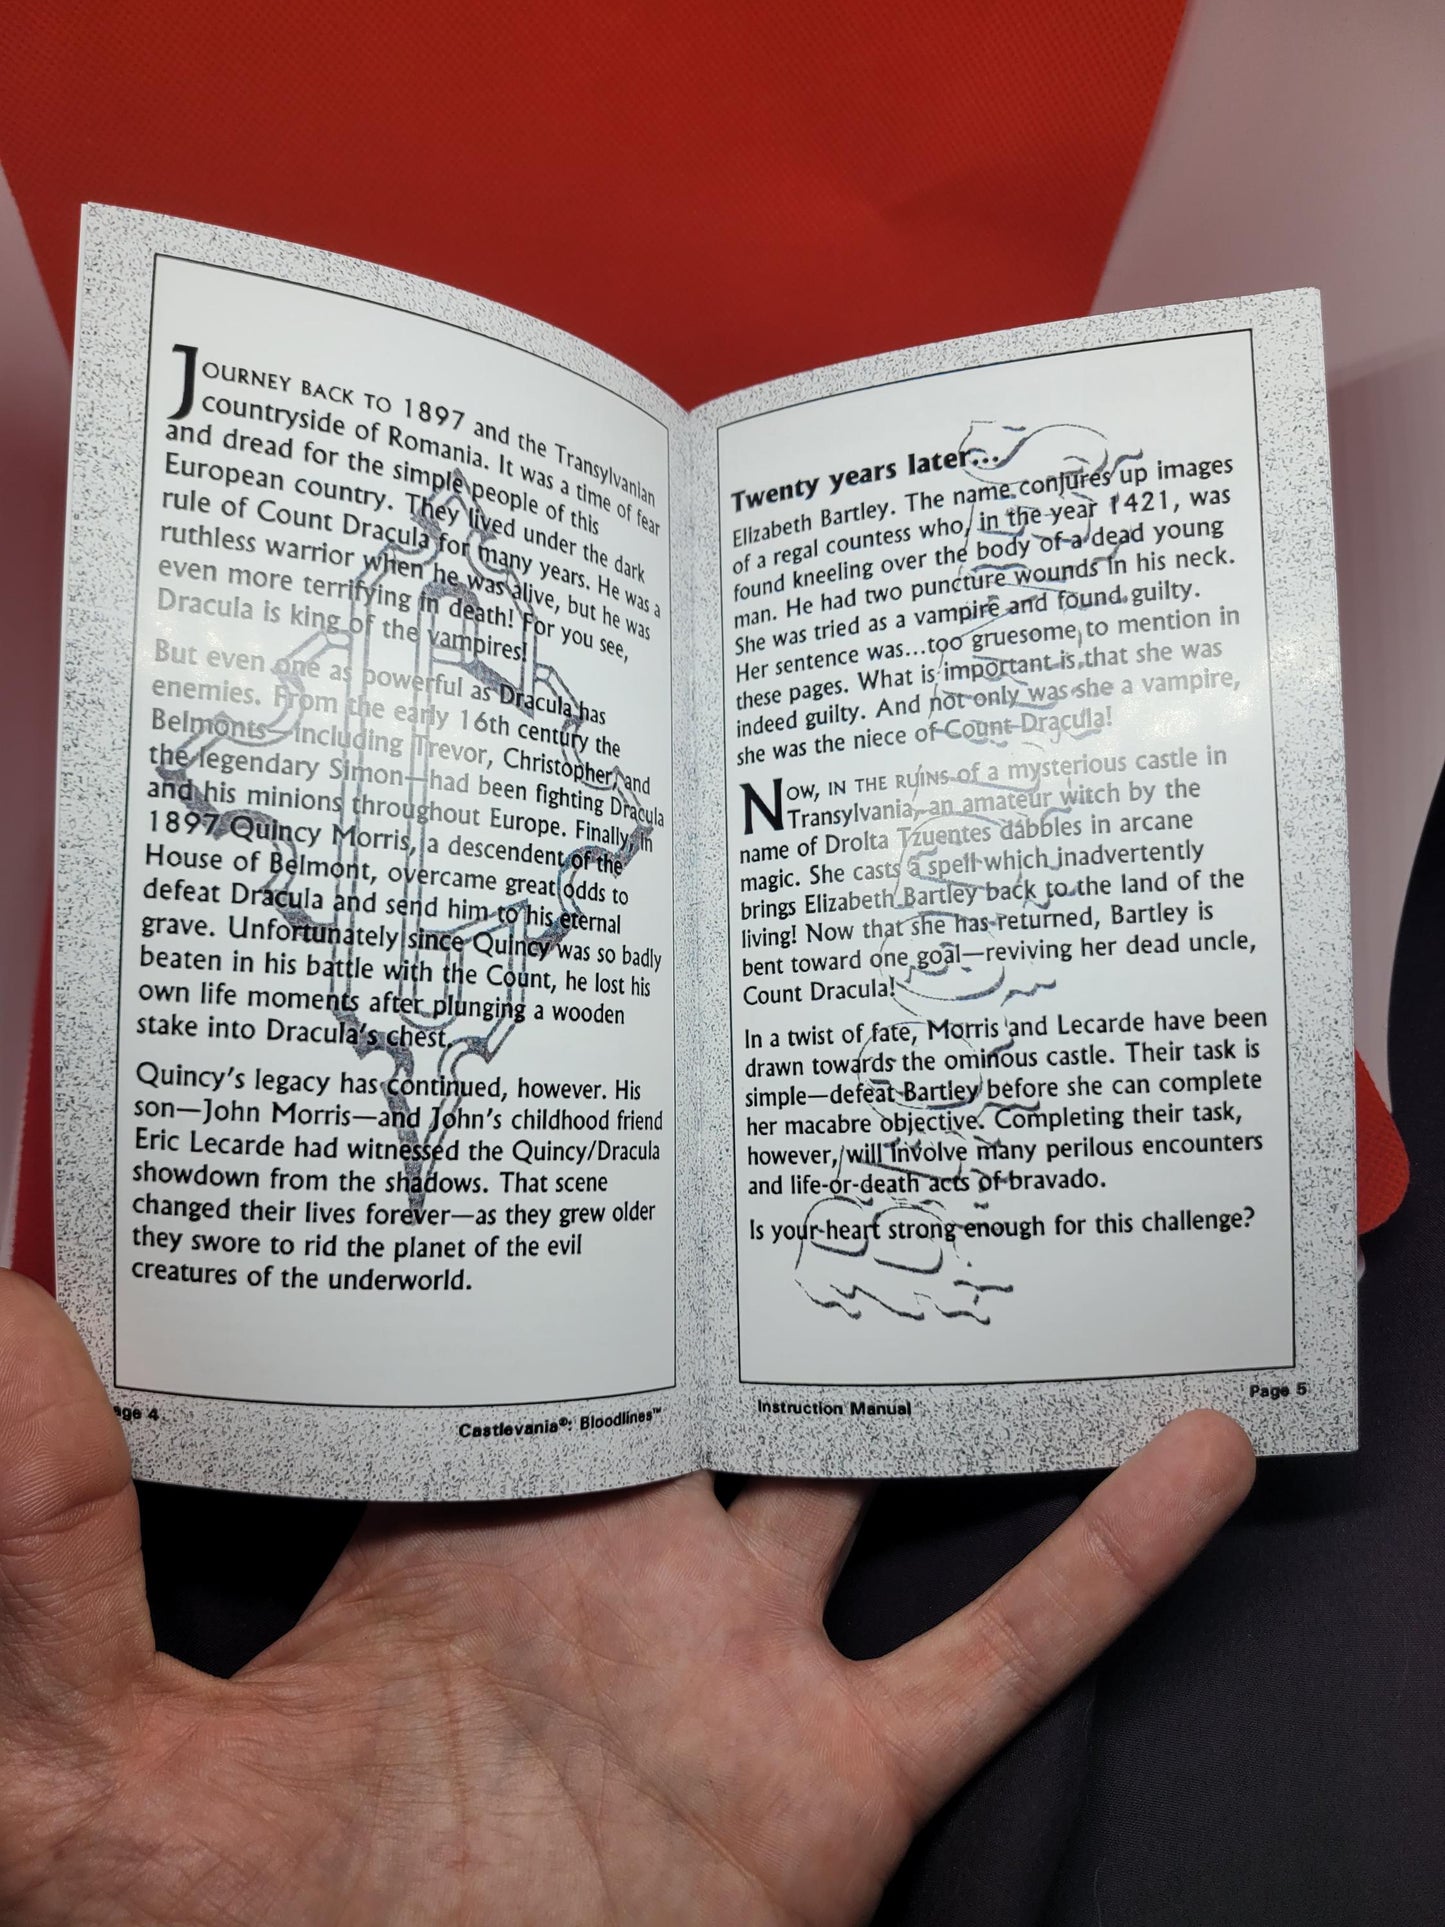 JOURNEY BACK TO 1897 and the Transylvanian
countryside of Romania. It was a time of fear
and dread for the simple people of this
European country. They lived under the dark
rule of Count Dracula for many years. He was a
ruthless warrior when he was alive, but he was
even more terrifying in death! For you see,
Dracula is king of the vampires!
But even one as powerful as Dracula has
enemies. From the early 16th century the
Belmonts—including Trevor, Christopher, and
the legendary Simon—had been fighting Dracula
and his minions throughout Europe. Finally, in
1897 Quincy Morris, a descendent of the
House of Belmont, overcame great odds to
defeat Dracula and send him to his eternal
grave. Unfortunately since Quincy was so badly
beaten in his battle with the Count, he lost his
own life moments after plunging a wooden
stake into Dracula's chest.
Quincy's legacy has continued, however. His
son—John Morris—and John's childhood friend
Eric Lecarde had witnessed the Quincy/Dracula
showdown from the shadows. That scene
changed their lives forever—as they grew older
they swore to rid the planet of the evil
creatures of the underworld.
age 4
Castlevania®: Bloodlines™
Twenty years later...
Elizabeth Bartley. The name conjures up images
of a regal countess who, in the year 1421, was
found kneeling over the body of a dead young
man. He had two puncture wounds in his neck.
She was tried as a vampire and found guilty.
Her sentence was...too gruesome to mention in
these pages. What is important is that she was
indeed guilty. And not only was she a vampire,
she was the niece of Count Dracula!
NOW, IN THE RUINS of a mysterious castle in
Transylvania, an amateur witch by the
name of Drolta Tzuentes dabbles in arcane
magic. She casts a spell which inadvertently
brings Elizabeth Bartley back to the land of the
living! Now that she has returned, Bartley is
bent toward one goal—reviving her dead uncle,
Count Dracula!
In a twist of fate, Morris and Lecarde have been
drawn towards the ominous castle. Their task is
simple—defeat Bartley before she can complete
her macabre objective. Completing their task,
however, will involve many perilous encounters
and life-or-death acts of bravado.
Is your heart strong enough for this challenge?
Instruction Manual
Page 5